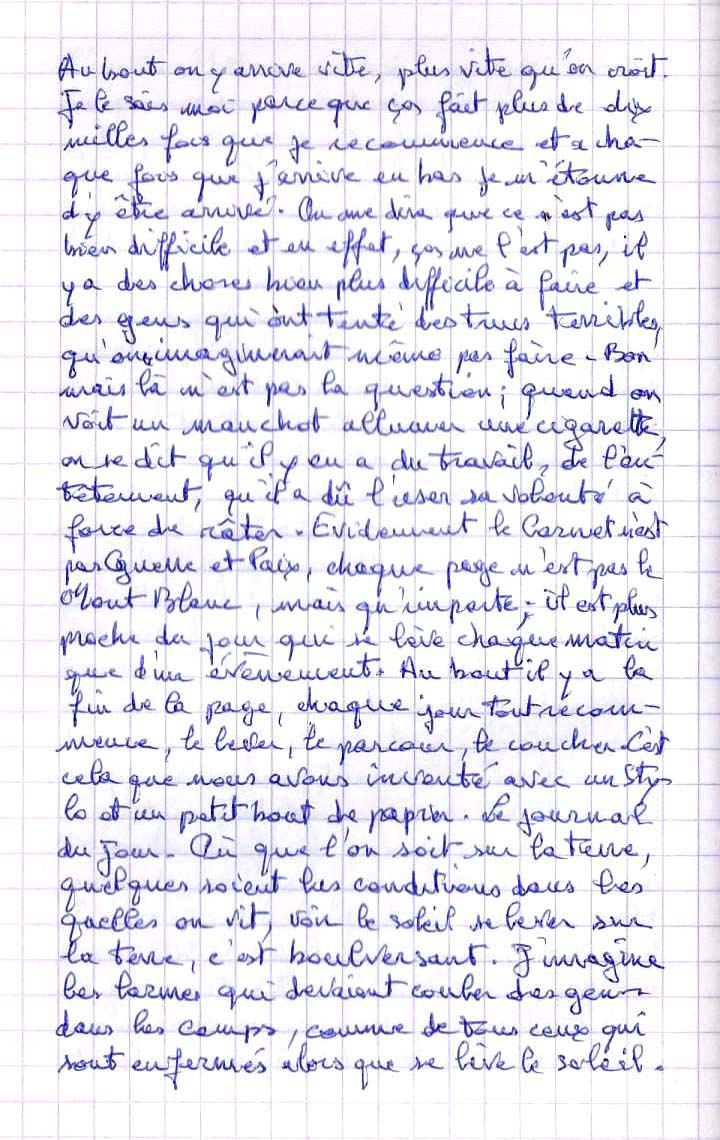 Au bout on y arrive vite, plus vite qu'on croit.
Je le sais moi parce que ças fait plus de dix
milles fois que je recommence et a cha-
que fois que j'arrive en bas je m'étonne
d'y être arrivé. On me dira que ce n'est pas
bien difficile et en effet, ças ne l'est pas, il
y a des choses bien plus difficile à faire et
des gens qui ont tenté des trucs terribles,
qu'on imaginerait même pas faire - Bon
mais là n'est pas la question ; quand on
voit un manchot allumer une cigarette,
on se dit qu'il y en a du travail, de l'en-
têtement, qu'il a dû l'user sa volonté à
force de râter. Evidemment le Carnet n'est
pas Guerre et Paix, chaque page n'est pas le
Mont Blanc, mais qu'importe ; il est plus
proche du jour qui se lève chaque matin
que d'un évènement. Au bout il y a la
fin de la page, chaque jour tout recom-
mence, le lever, le parcour, le coucher. C'est
cela que nous avons inventé avec un Sty-
lo et un petit bout de papier. Le journal
du jour. Où que l'on soit sur la terre,
quelques soient les conditions dans les
quelles on vit, voir le soleil se lever sur
la terre, c'est boulversant. J'imagine
les larmes qui devaient couler des gens
dans les camps, comme de tous ceux qui
sont enfermés alors que se lève le soleil.